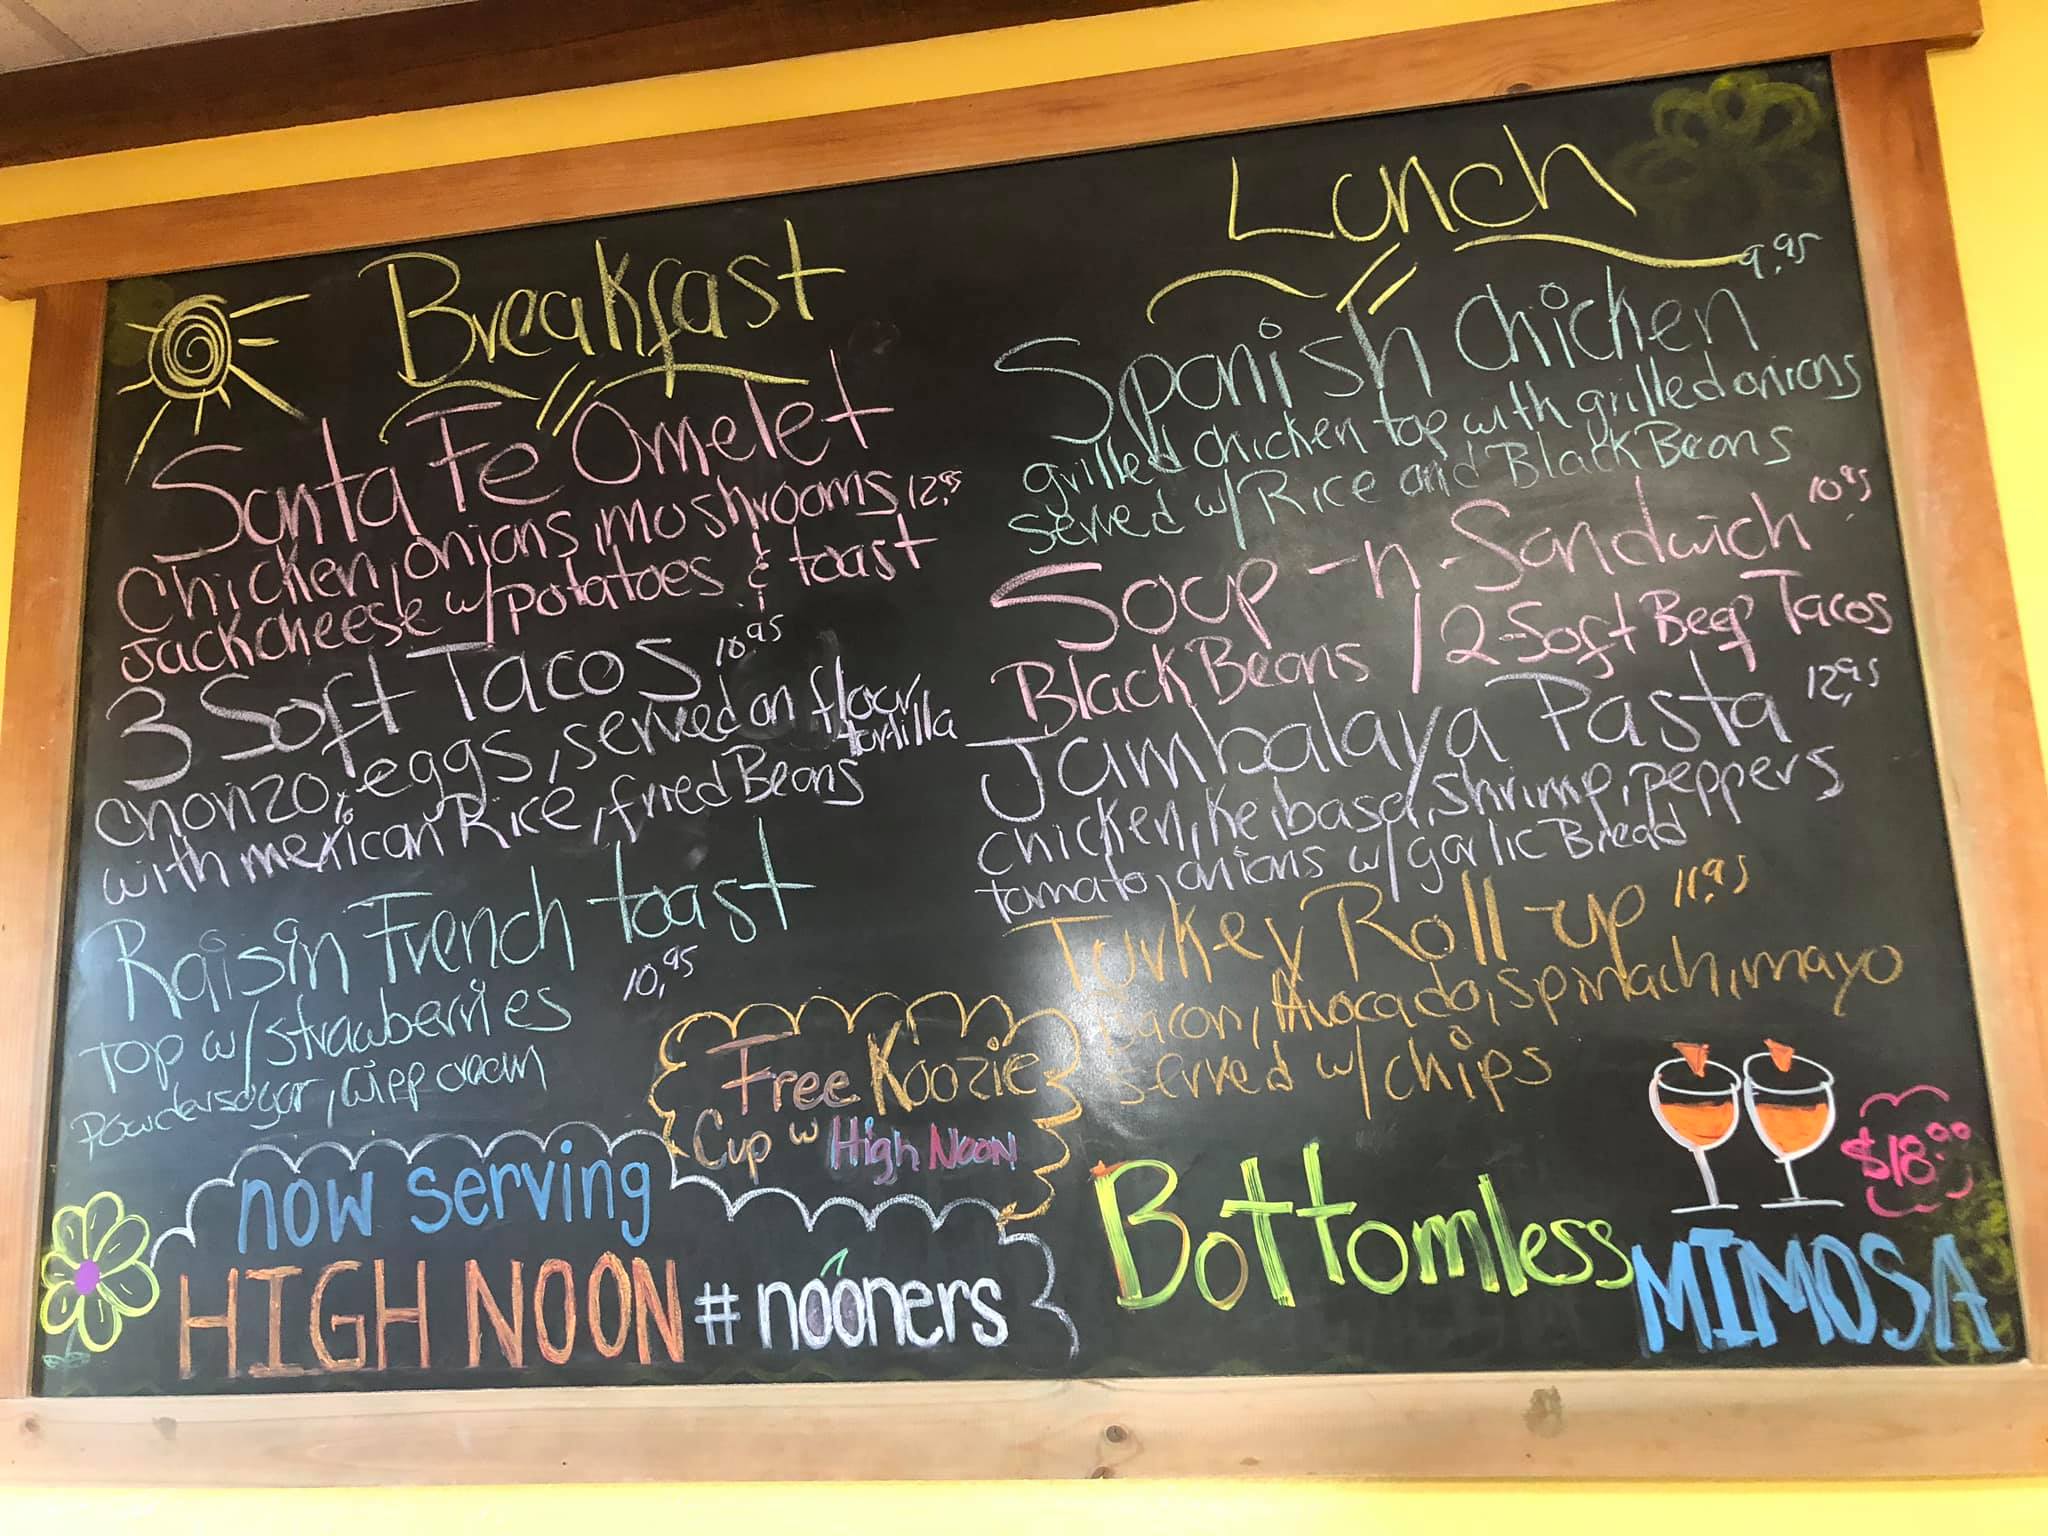 Breakfast
Santa Fe Omelet
Chicken, onions, mushrooms 12.95
Jack cheese w/potatoes & toast
3 Soft Tacos 10.95
chorizo, eggs, served on flour tortilla
with mexican Rice, fried Beans
Raisin French toast
10.95
Top w/strawberries
Powder sugar, wipp cream
Free Koozie
Cup w High Noon
now serving
HIGH NOON #nooners
Lunch
Spanish Chicken 9.95
grilled chicken top with grilled onions
Served w/ Rice and Black Beans
Soup-n-Sandwich 10.95
Black Beans / 2-Soft Beef Tacos
Jambalaya Pasta 12.95
Chicken, Keibasa, Shrimp, peppers
tomato, onions w/garlic Bread
Turkey Roll up 11.95
Bacon, Avocado, spinach, mayo
served w/ chips
$18.00
Bottomless MIMOSA